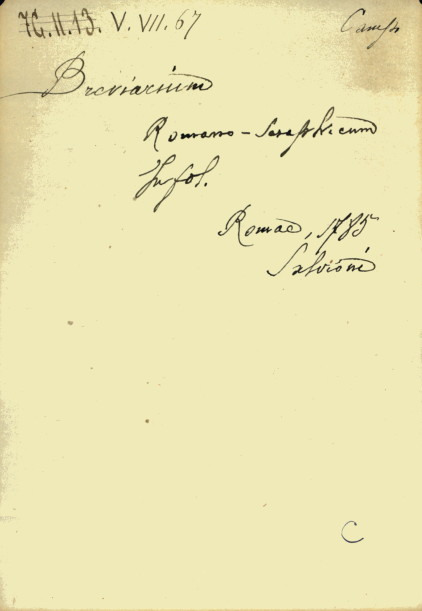 7G.II.13. V. VII. 67
Breviarium
Romano-Seraphicum
In fol.
Romae, 1785
Salvioni
C